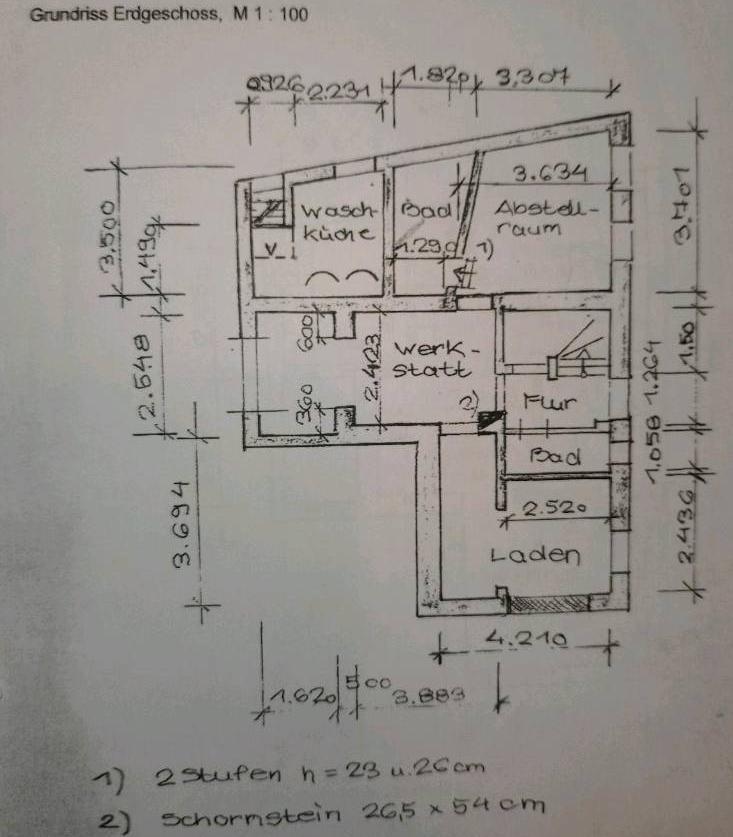 Grundriss Erdgeschoss, M 1 : 100
0926 2.231 1.82p 3,307
3.634
Wasch-
küche
Bad
Abstell-
raum
1.290 1)
V
3.500
1,490
3.701
2.548
600
360
2.423
Werk-
statt
2)
Flur
Bad
1.50
1.264
1.058
2.436
2.520
Laden
3.694
4.210
1.620 500 3.883
1) 2 Stufen h = 23 u. 26 cm
2) Schornstein 26,5 x 54 cm